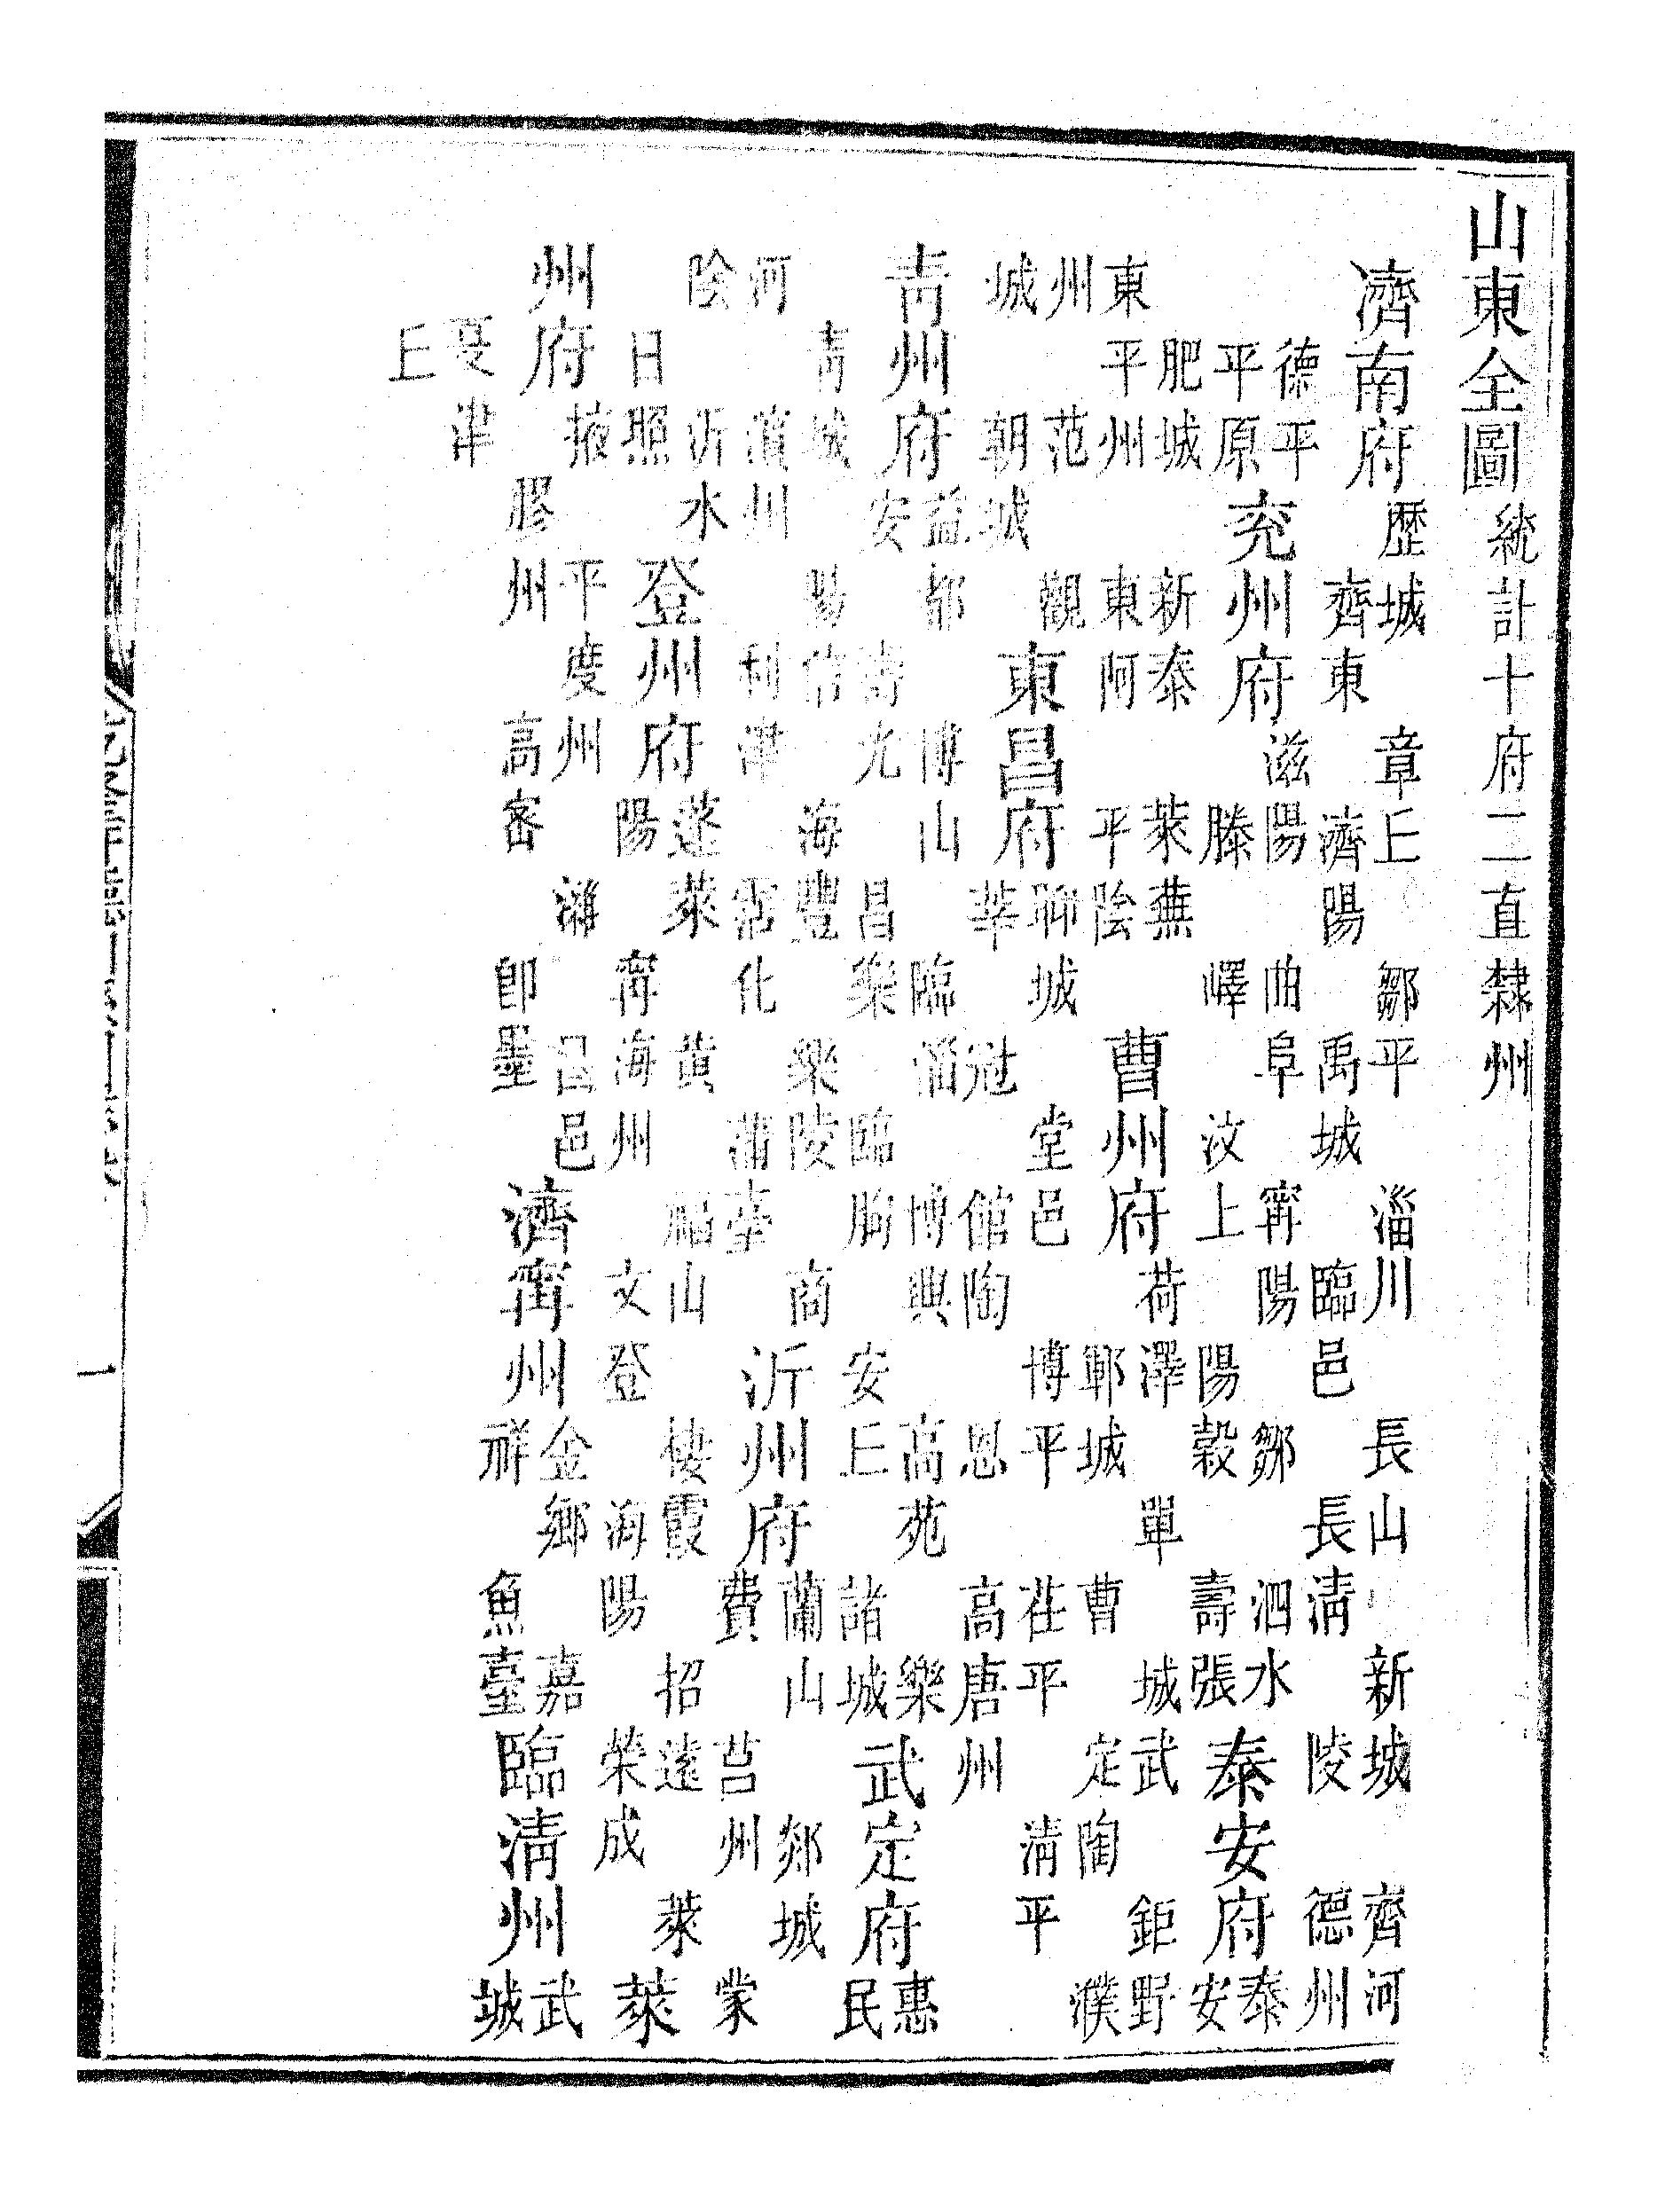 山東全圖統計十府二直隸州
濟南府歷城 章丘 鄒平 淄川 長山 新城 齊河
齊東 濟陽 禹城 臨邑 長清 陵 德州
德平
平原
兖州府滋陽 曲阜 甯陽 鄒 泗水
滕 嶧 汶上 陽穀 壽張
泰安府泰
安
肥城 新泰 萊蕪
東平州 東阿 平陰
曹州府荷澤 單 城武 鉅野
鄆城 曹 定陶 濮
州 范 觀
城 朝城
東昌府聊城 堂邑 博平 茌平 清平
莘 冠 館陶 恩 高唐州
青州府益都 博山 臨淄 博興 高苑 樂
安 壽光 昌樂 臨朐 安丘 諸城
武定府惠
民
青城 陽信 海豐 樂陵 商
河 濱州 利津 霑化 蒲臺
沂州府蘭山 郯城
費 莒州 蒙
陰 沂水
日照
登州府蓬萊 黃 福山 棲霞 招遠 萊
陽 甯海州 文登 海陽 榮成
萊
州府掖 平度州 濰 昌邑
膠州 高密 卽墨
濟甯州金鄉 嘉
祥 魚臺
臨清州武
城
夏津
丘
一